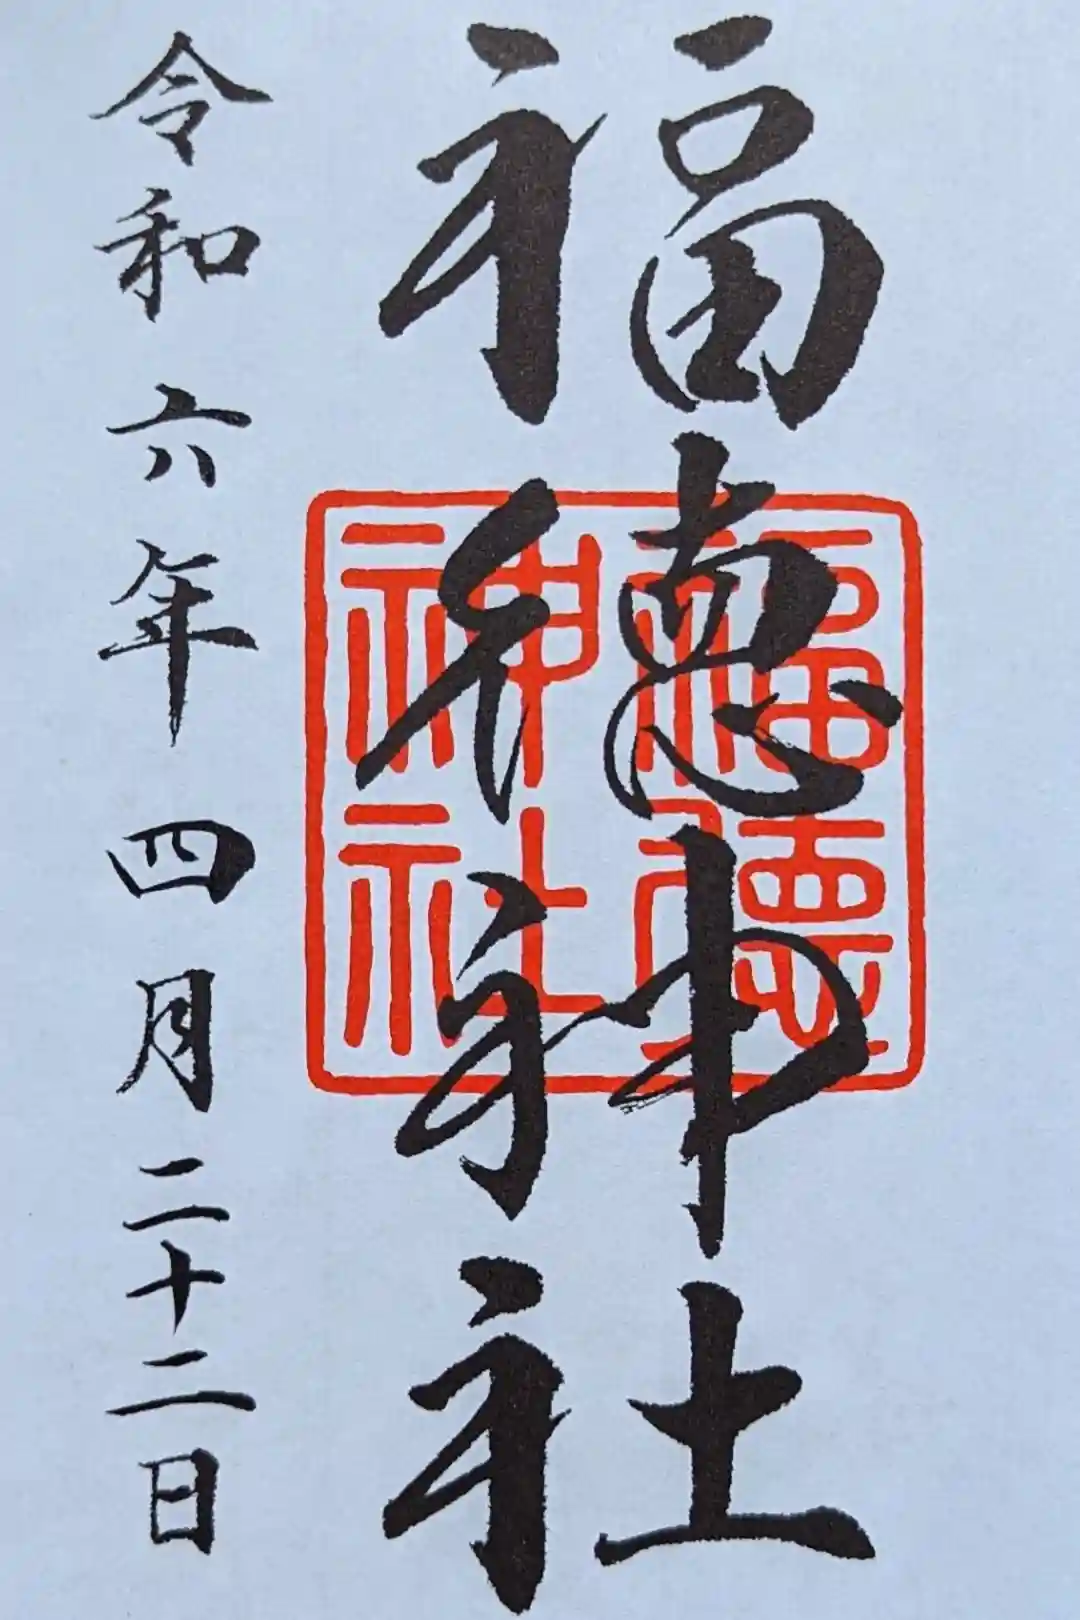 福徳神社
福徳神社
令和六年四月二十二日